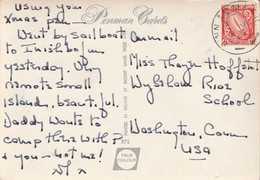 Using your
Xmas pen
Penman Cards
Went by sailboat
to Inishbofin
yesterday. Very
remote small
island, beautiful.
Daddy wants to
camp there with ?
+ you - not me!
Airmail
Miss Thayer
Wykeham Rise
School
Washington, Conn
USA
572
TRUE
COLOUR